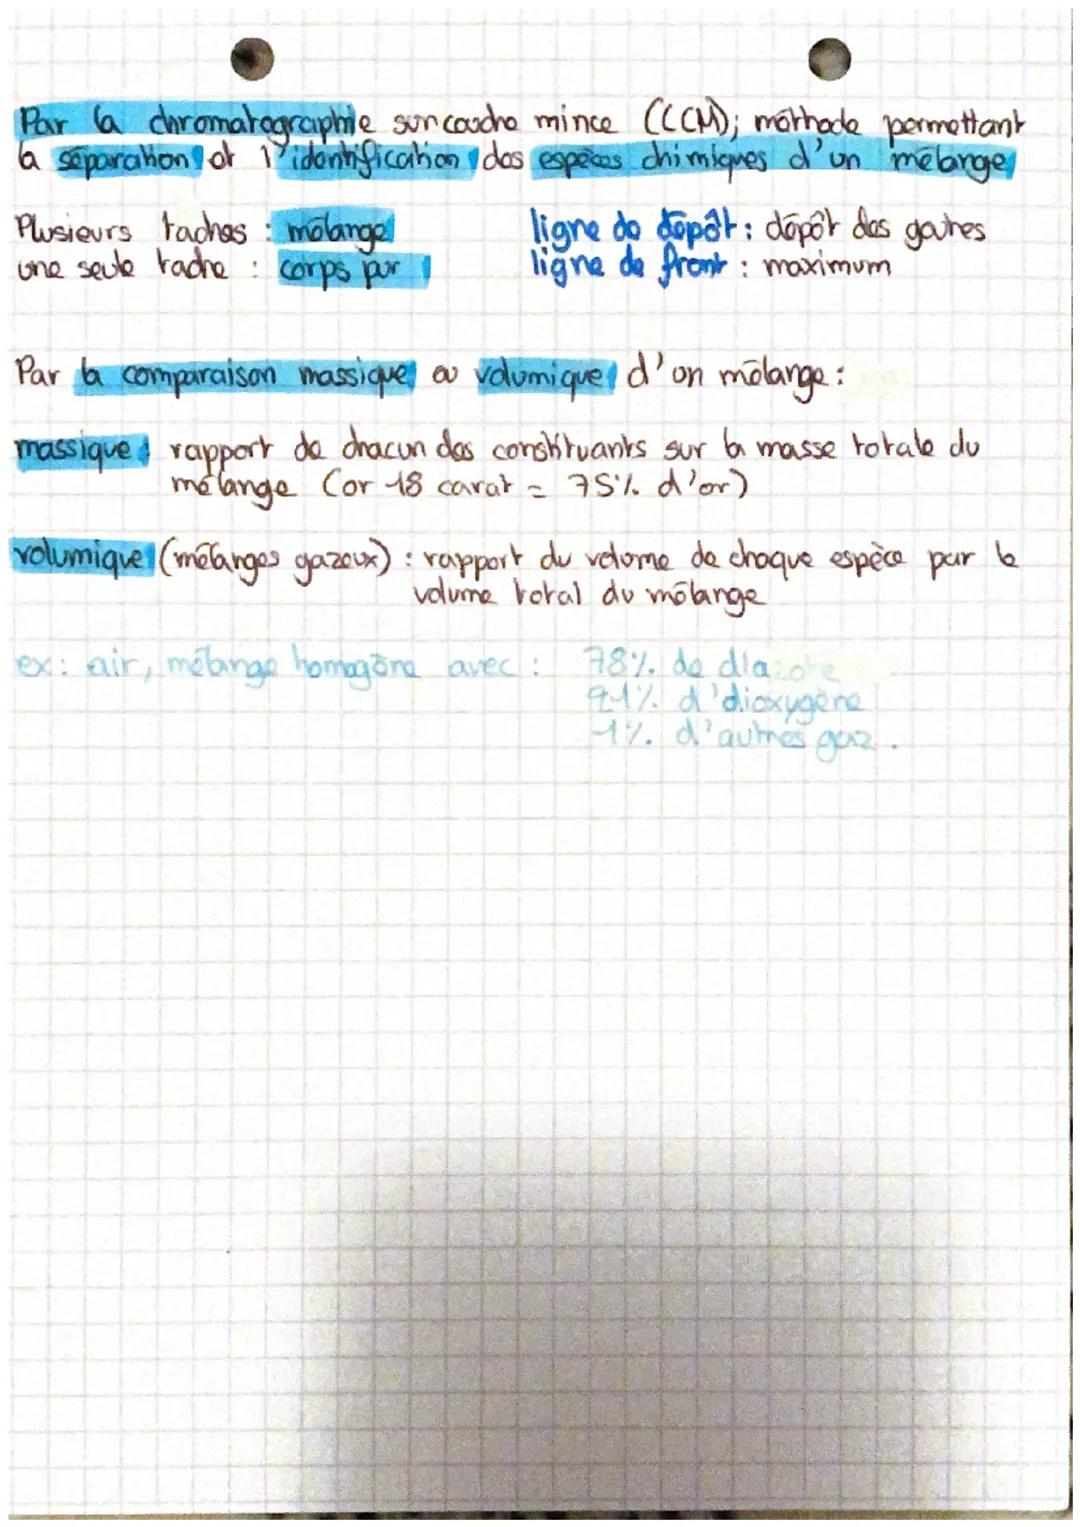 Par la chromatographie sur couche mince (CCM); méthode permettant
la séparation et l'identification des espèces chimiques d'un mélange
Plusieurs taches : mélange
une seule tache : corps pur
ligne de dépôt : dépôt des gouttes
ligne de front : maximum
Par la comparaison massique ou volumique d'un mélange :
massique : rapport de chacun des constituants sur la masse totale du
mélange (or 18 carat = 75% d'or)
volumique (mélanges gazeux) : rapport du volume de chaque espèce par le
volume total du mélange
ex : air, mélange homogène avec : 78% de diazote
21% d'dioxygène
1% d'autres gaz.